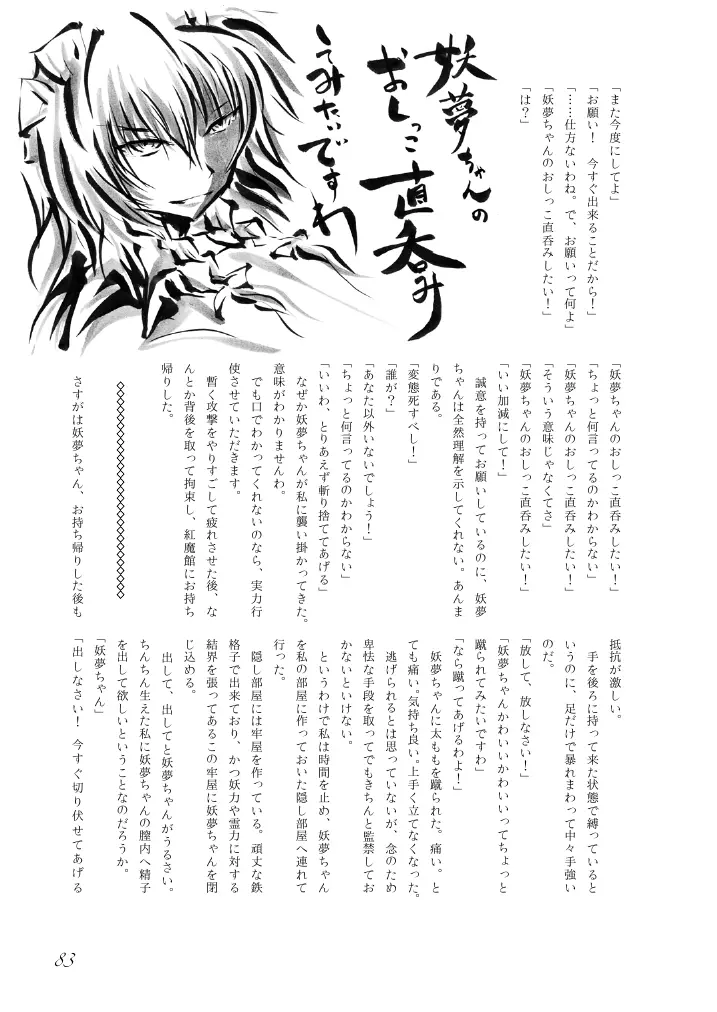 妖夢ちゃんの
おしっこ直呑み
してみたいですわ
「また今度にしてよ」
「お願い！　今すぐ出来ることだから！」
「……仕方ないわね。で、お願いって何よ」
「妖夢ちゃんのおしっこ直呑みしたい！」
「は？」
「妖夢ちゃんのおしっこ直呑みしたい！」
「ちょっと何言ってるのかわからない」
「妖夢ちゃんのおしっこ直呑みしたい！」
「そういう意味じゃなくてさ」
「妖夢ちゃんのおしっこ直呑みしたい！」
「いい加減にして！」
　誠意を持ってお願いしているのに、妖夢
ちゃんは全然理解を示してくれない。あんま
りである。
「変態死すべし！」
「誰が？」
「あなた以外いないでしょう！」
「ちょっと何言ってるのかわからない」
「いいわ、とりあえず斬り捨ててあげる」
　なぜか妖夢ちゃんが私に襲い掛かってきた。
意味がわかりませんわ。
　でも口でわかってくれないのなら、実力行
使させていただきます。
　暫く攻撃をやりすごして疲れさせた後、な
んとか背後を取って拘束し、紅魔館にお持ち
帰りした。
◇◇◇◇◇◇◇◇◇◇◇◇◇◇◇◇◇◇◇◇
　さすがは妖夢ちゃん、お持ち帰りした後も
抵抗が激しい。
　手を後ろに持って来た状態で縛っていると
いうのに、足だけで暴れまわって中々手強い
のだ。
「放して、放しなさい！」
「妖夢ちゃんかわいいかわいいってちょっと
蹴られてみたいですわ」
「なら蹴ってあげるわよ！」
　妖夢ちゃんに太ももを蹴られた。痛い。と
ても痛い。気持ち良い。上手く立てなくなった。
　逃げられるとは思っていないが、念のため
卑怯な手段を取ってでもきちんと監禁してお
かないといけない。
　というわけで私は時間を止め、妖夢ちゃん
を私の部屋に作っておいた隠し部屋へ連れて
行った。
　隠し部屋には牢屋を作っている。頑丈な鉄
格子で出来ており、かつ妖力や霊力に対する
結界を張ってあるこの牢屋に妖夢ちゃんを閉
じ込める。
　出して、出してと妖夢ちゃんがうるさい。
ちんちん生えた私に妖夢ちゃんの膣内へ精子
を出して欲しいということなのだろうか。
「妖夢ちゃん」
「出しなさい！　今すぐ切り伏せてあげる
83